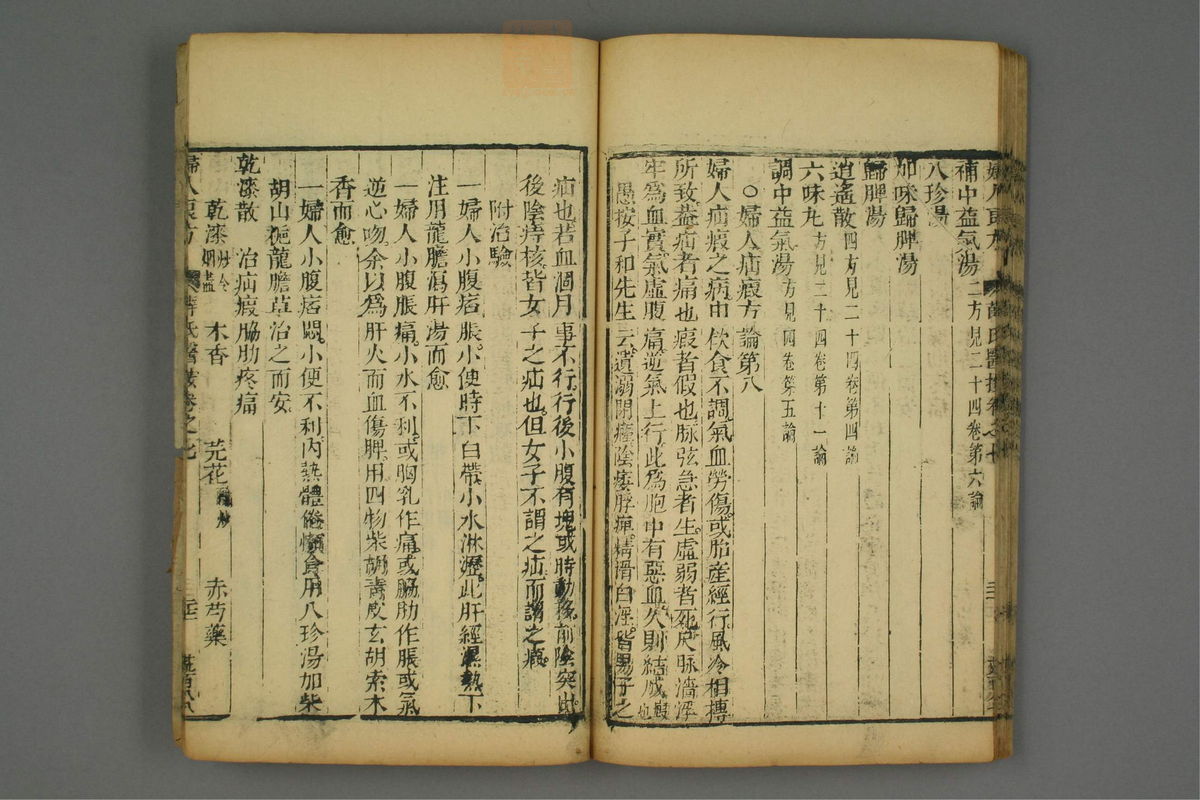 補中益氣湯二方見二十四卷第六論
八珍湯
加味歸脾湯
歸脾湯
逍遙散四方見二十四卷第四論
六味丸方見二十四卷第十一論
調中益氣湯方見四卷第五論
○婦人疝瘕方論第八
婦人疝瘕之病由飲食不調氣血勞傷或胎產經行風冷相搏
所致葢疝者痛也瘕者假也脉弦急者生虛弱者死尺脉濇浮
牢爲血實氣虛腹痛逆氣上行此爲胞中有惡血久則結成瘕也
愚按子和先生云遺溺閉癃陰痿脬痺精滑白淫皆男子之
疝也若血涸月事不行行後小腹有塊或時動移前陰突出
後陰痔核皆女子之疝也但女子不謂之疝而謂之瘕
附治驗
一婦人小腹痞脹小便時下白帶小水淋瀝此肝經濕熱下
注用龍膽瀉肝湯而愈
一婦人小腹脹痛小水不利或胸乳作痛或脇肋作脹或氣
逆心吻余以爲肝火而血傷脾用四物柴胡靑皮玄胡索木
香而愈
一婦人小腹痞悶小便不利內熱體倦懶食用八珍湯加柴
胡山梔龍膽草治之而安
乾漆散　治疝瘕脇肋疼痛
乾漆炒令烟盡　木香　芫花醋炒　赤芍藥
婦人良方　薛氏醫按卷之七